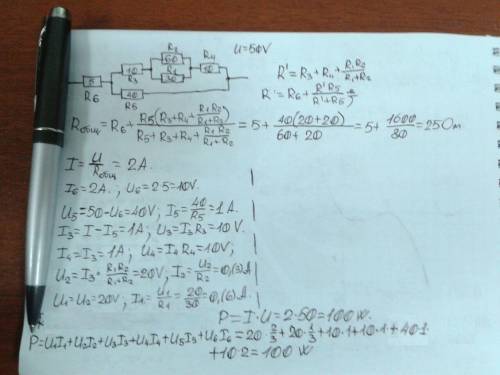 R₂
60
U=50V
R₄
10
R₃
R₁
30
10
5
R₆
40
R₅
R' = R₃+R₄+ R₁R₂/(R₁+R₂)
R = R₆+ R'R₅/(R'+R₅)
Rобщ = R₆+ R₅(R₃+R₄+ R₁R₂/(R₁+R₂))/(R₅+R₃+R₄+ R₁R₂/(R₁+R₂)) = 5+ 40(20+20)/(60+20) = 5+ 1600/80 = 25Ом
I = U/Rобщ = 2A.
I₆=2A. ; U₆=2·5=10V.
U₅=50-U₆=40V; I₅= 40/R₅ =1A.
I₃=I-I₅=1A; U₃=I₃R₃=10V.
I₄=I₃=1A; U₄=I₄R₄=10V;
U₂=I₃· R₁R₂/(R₁+R₂) =20V; I₂= U₂/R₂ =0,(3)A
U₁=U₂=20V, I₁= U₁/R₁ = 20/30 =0,(6)A.
P=I·U=2·50=100W.
P=U₁I₁+U₂I₂+U₃I₃+U₄I₄+U₅I₅+U₆I₆=20·2/3+20·1/3+10·1+10·1+40·1
+10·2=100W